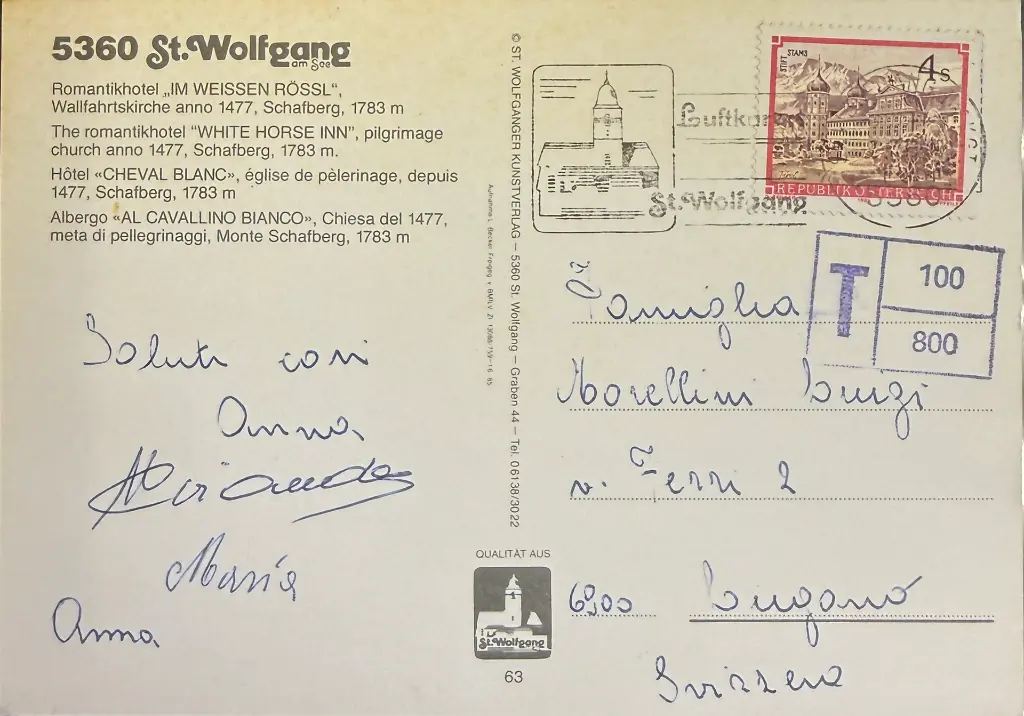 5360 St. Wolfgang
am See
Romantikhotel „IM WEISSEN RÖSSL",
Wallfahrtskirche anno 1477, Schafberg, 1783 m
The romantikhotel "WHITE HORSE INN", pilgrimage
church anno 1477, Schafberg, 1783 m.
Hôtel «CHEVAL BLANC», église de pèlerinage, depuis
1477, Schafberg, 1783 m
Albergo «AL CAVALLINO BIANCO», Chiesa del 1477,
meta di pellegrinaggi, Monte Schafberg, 1783 m
Saluti cari
Anna
Miranda
Maria
Anna
© ST. WOLFGANGER KUNSTVERLAG – 5360 St. Wolfgang – Graben 44 – Tel. 06138/3022
QUALITÄT AUS
St. Wolfgang
63
St. Wolfgang
STIFT STAMS
4 S
REPUBLIK ÖSTERREICH
5360
T
100
800
Famiglia
Morellini Luigi
v. Ferri 2
6900 Lugano
Svizzera